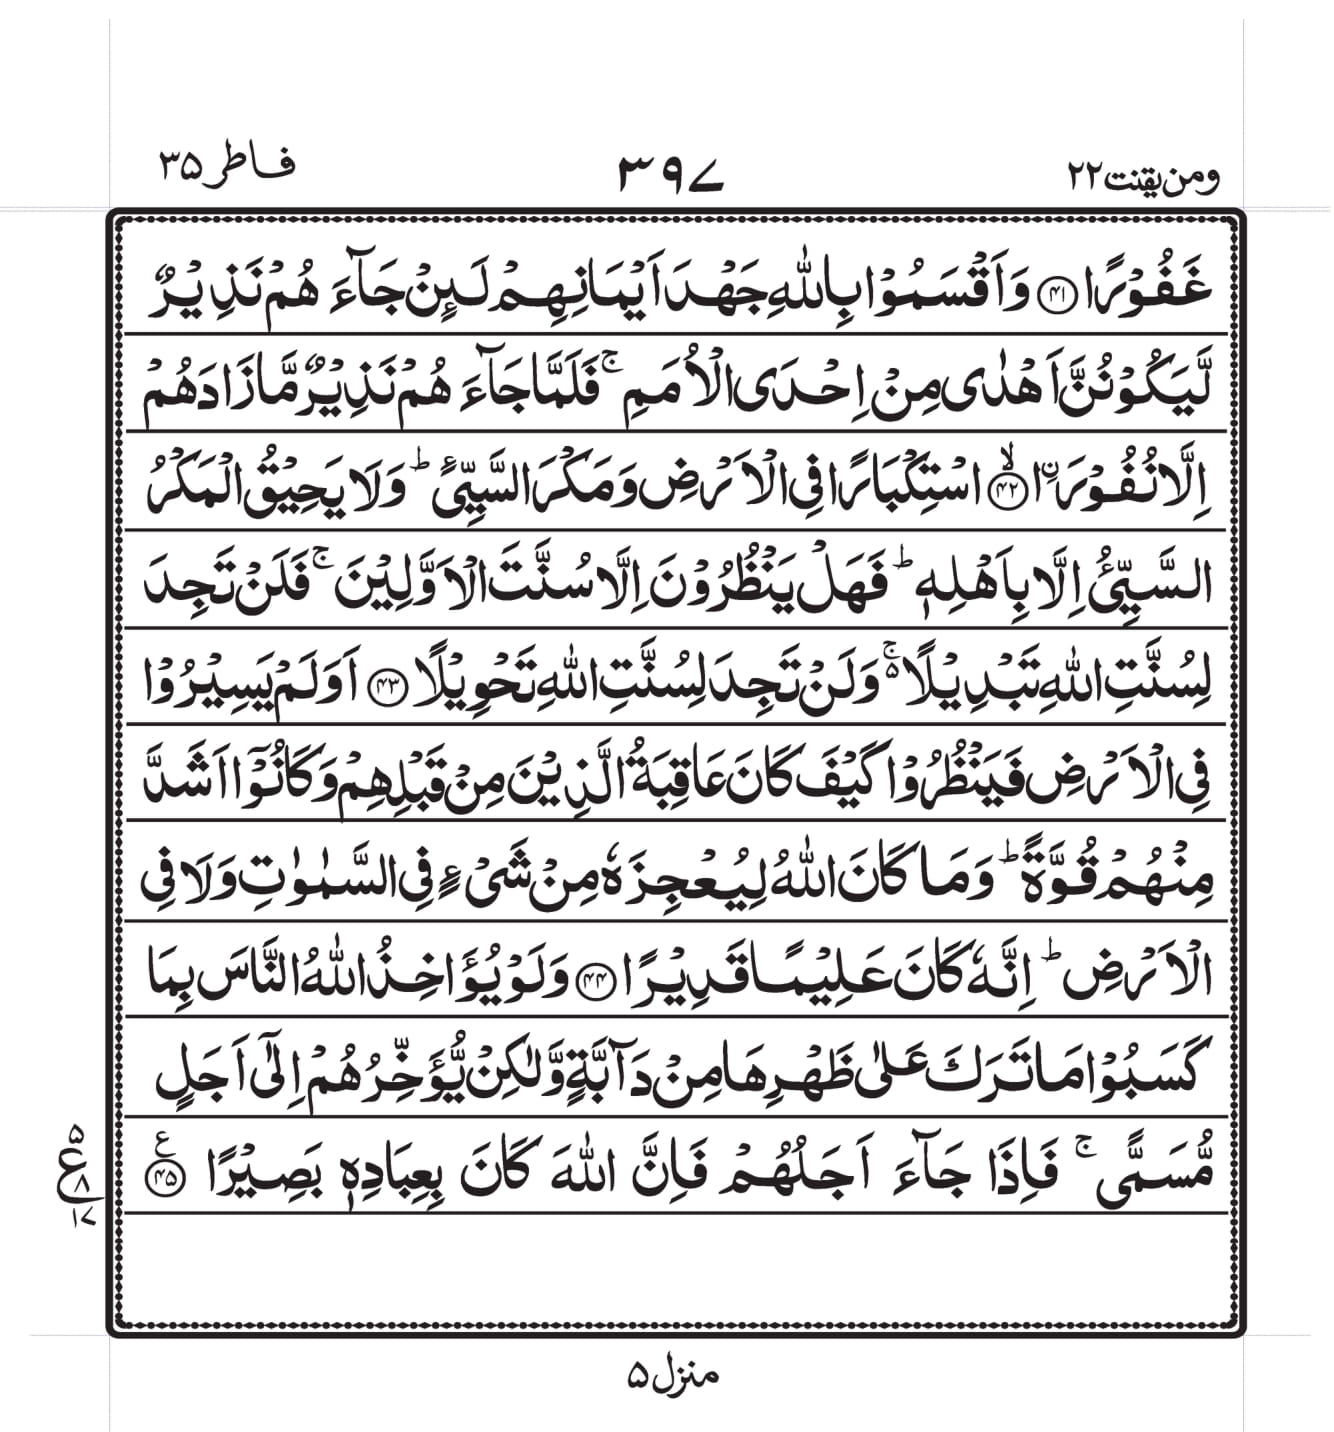 ومن یقنت ۲۲
۳۹۷
فاطر ۳۵
غَفُوْرًا ﴿۴۱﴾ وَاَقْسَمُوْا بِاللّٰهِ جَهْدَ اَیْمَانِهِمْ لَىِٕنْ جَآءَ هُمْ نَذِیْرٌ
لَّیَكُوْنُنَّ اَهْدٰى مِنْ اِحْدَى الْاُمَمِ ۚ فَلَمَّا جَآءَ هُمْ نَذِیْرٌ مَّا زَادَهُمْ
اِلَّا نُفُوْرَاۨ ﴿ۙ۴۲﴾ اسْتِكْبَارًا فِی الْاَرْضِ وَ مَكْرَ السَّیِّئِ ؕ وَلَا یَحِیْقُ الْمَكْرُ
السَّیِّئُ اِلَّا بِاَهْلِهٖ ؕ فَهَلْ یَنْظُرُوْنَ اِلَّا سُنَّتَ الْاَوَّلِیْنَ ۚ فَلَنْ تَجِدَ
لِسُنَّتِ اللّٰهِ تَبْدِیْلًا ۚ۵ وَلَنْ تَجِدَ لِسُنَّتِ اللّٰهِ تَحْوِیْلًا ﴿۴۳﴾ اَوَلَمْ یَسِیْرُوْا
فِی الْاَرْضِ فَیَنْظُرُوْا كَیْفَ كَانَ عَاقِبَةُ الَّذِیْنَ مِنْ قَبْلِهِمْ وَكَانُوْۤا اَشَدَّ
مِنْهُمْ قُوَّةً ؕ وَمَا كَانَ اللّٰهُ لِیُعْجِزَهٗ مِنْ شَیْءٍ فِی السَّمٰوٰتِ وَلَا فِی
الْاَرْضِ ؕ اِنَّهٗ كَانَ عَلِیْمًا قَدِیْرًا ﴿۴۴﴾ وَلَوْ یُؤَاخِذُ اللّٰهُ النَّاسَ بِمَا
كَسَبُوْا مَا تَرَكَ عَلٰى ظَهْرِهَا مِنْ دَآبَّةٍ وَّلٰكِنْ یُّؤَخِّرُهُمْ اِلٰۤى اَجَلٍ
مُّسَمًّى ۚ فَاِذَا جَآءَ اَجَلُهُمْ فَاِنَّ اللّٰهَ كَانَ بِعِبَادِهٖ بَصِیْرًا ﴿۴۵﴾ ع
۵
ع ۸
۱۷
منزل ۵